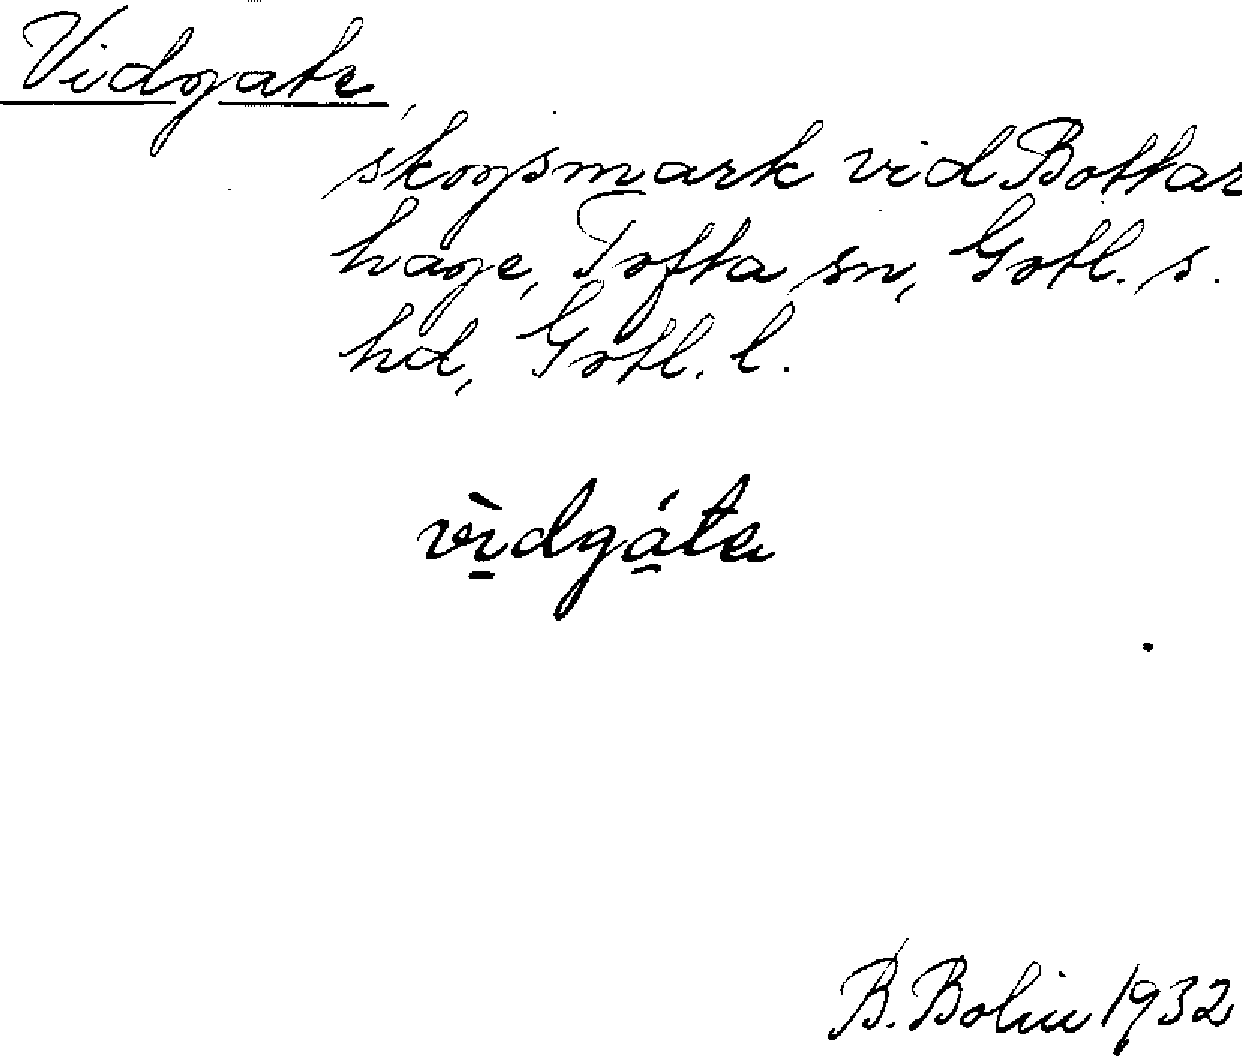 Vidgate,
skogsmark vid Bottar
hage, Tofta sn, Gotl. s.
hd, Gotl. l.
vìdgáta
B. Bolin 1932